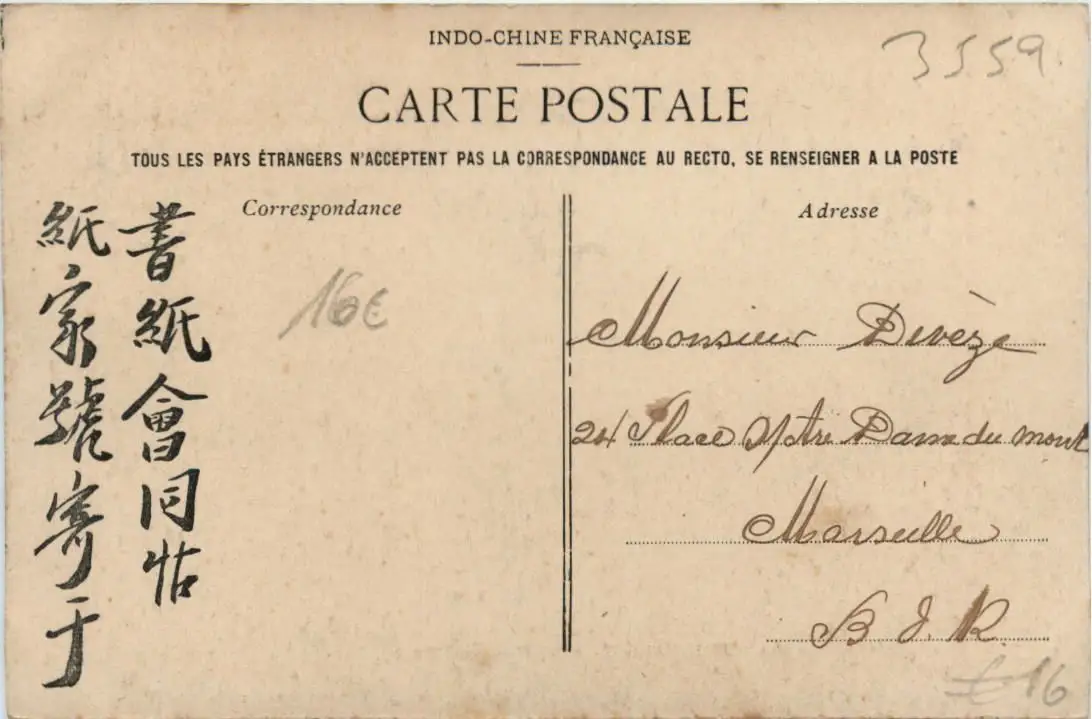 INDO-CHINE FRANÇAISE
3559.
CARTE POSTALE
TOUS LES PAYS ÉTRANGERS N'ACCEPTENT PAS LA CORRESPONDANCE AU RECTO, SE RENSEIGNER A LA POSTE
Correspondance
書紙會同
紙家號寄于
16€
Adresse
Monsieur Devèze
24 Place Notre Dame du mont
Marseille
B. d. R.
€16